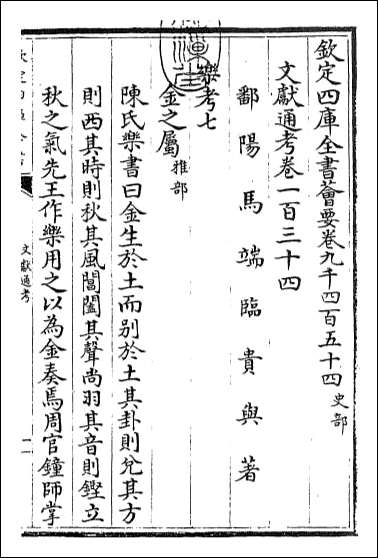 欽定四庫全書薈要卷九千四百五十四 史部
文獻通考卷一百三十四
鄱陽馬端臨貴與著
樂考七
金之屬 雅部
陳氏樂書曰金生於土而别於土其卦則兌其方
則西其時則秋其風閶闔其聲尚羽其音則鏗立
秋之氣先王作樂用之以為金奏焉周官鐘師掌
文獻通考
一